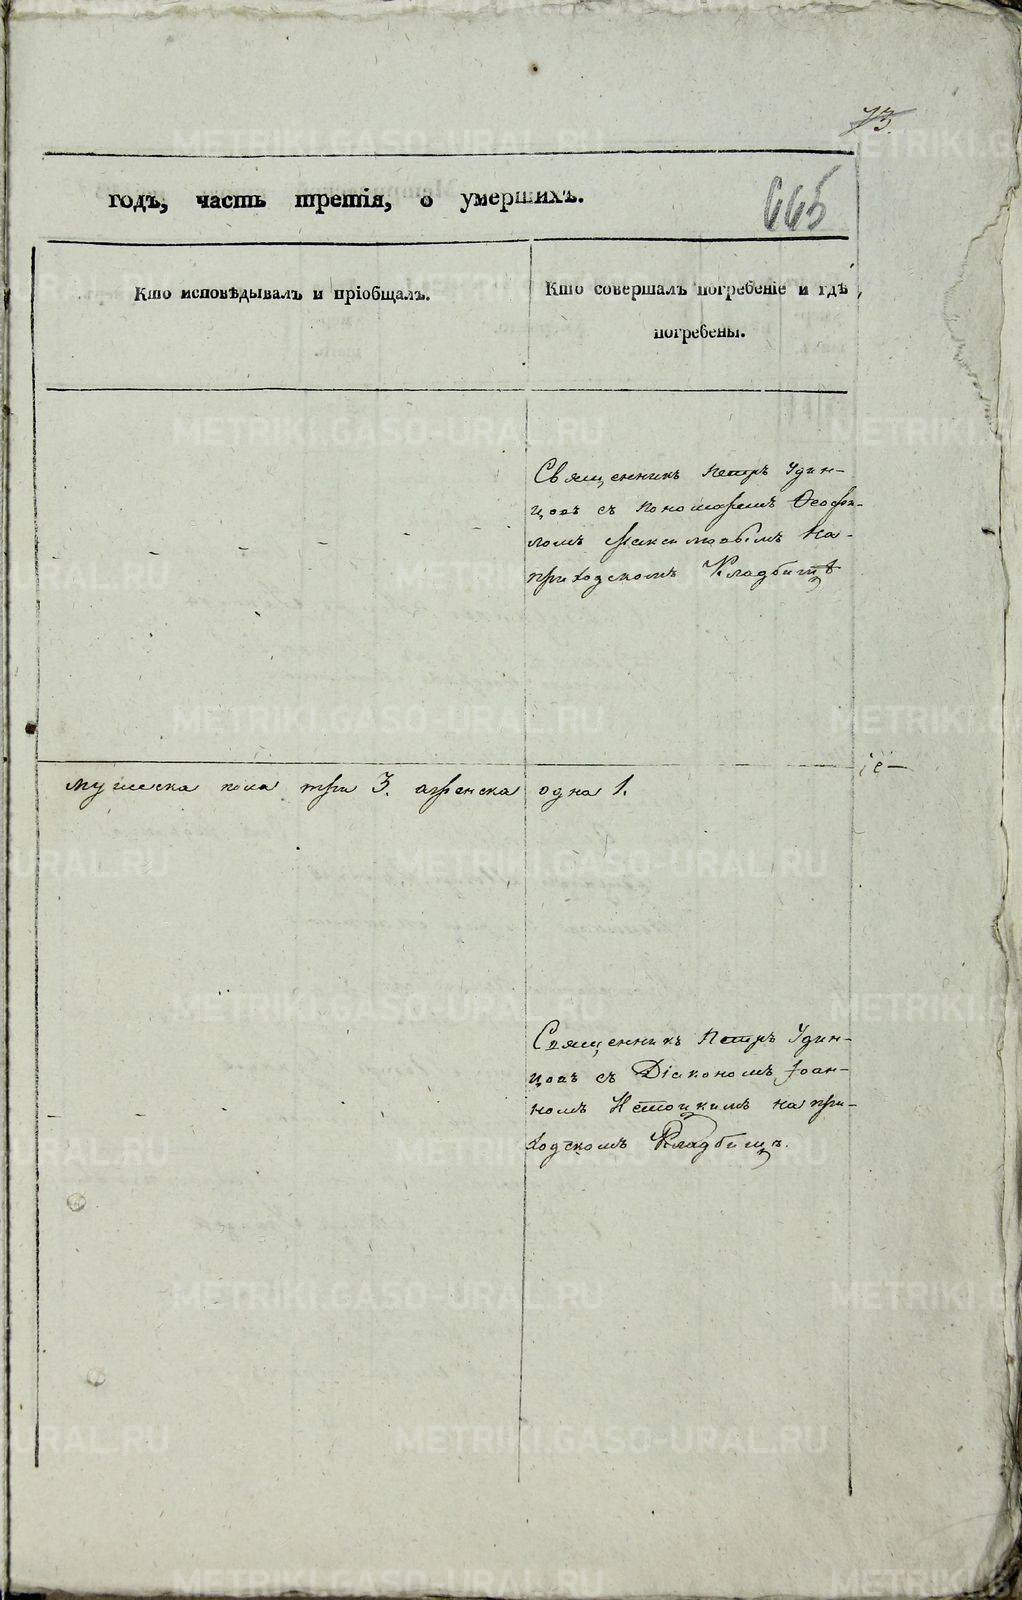 73.
годъ, часть третія, о умершихъ.
665
Кто исповѣдывалъ и пріобщалъ.
Кто совершалъ погребеніе и гдѣ
погребены.
Священникъ Петръ Удин-
цовъ съ пономаремъ Ѳеофи-
ломъ на-
приходскомъ Кладбищѣ
мужеска пола три 3. а женска одна 1.
Священникъ Петръ Удин-
цовъ съ Діакономъ Іоан-
номъ на при-
ходскомъ Кладбищѣ.
METRIKI.GASO-URAL.RU